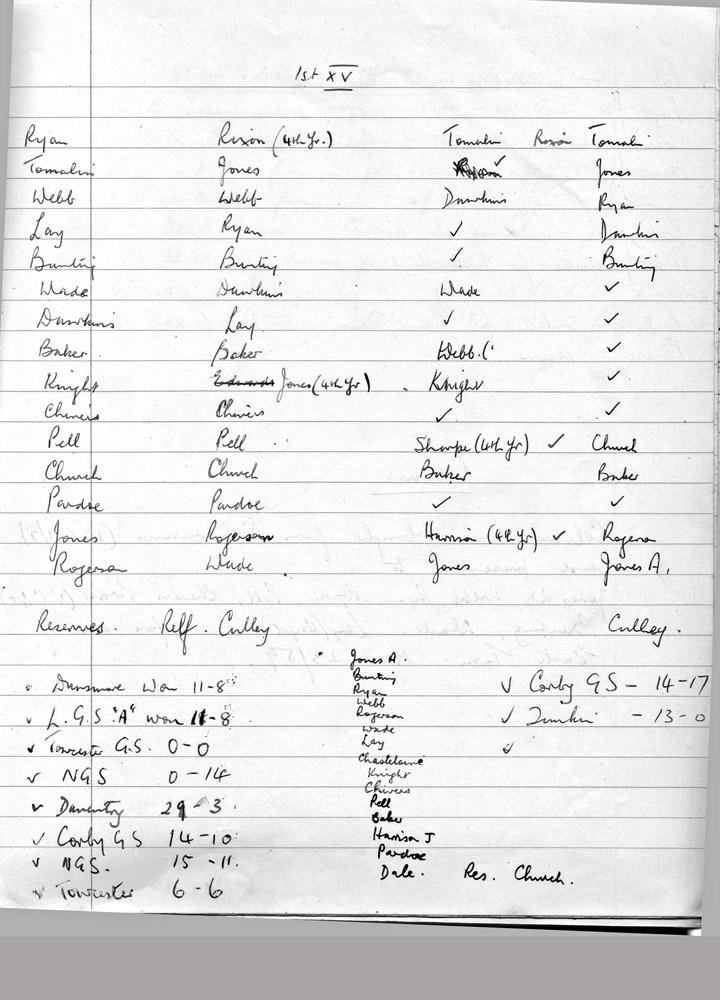 1st XV
Ryan Rixon (4th Yr.) Tomalin Rixon Tomalin
Tomalin Jones ✓ Jones
Webb Webb Dawkins Ryan
Lay Ryan ✓ Dawkins
Bunting Bunting ✓ Bunting
Wade Dawkins Wade ✓
Dawkins Lay ✓ ✓
Baker Baker Webb. ✓
Knight Edwards Jones (4th Yr) Knight ✓
Chivers Chivers ✓ ✓
Pell Pell Sharpe (4th Yr) ✓ Church
Church Church Baker Baker
Pardoe Pardoe ✓ ✓
Jones Rogerson Harrison (4th Yr) ✓ Rogerson
Rogerson Wade Jones Jones A.
Reserves. Reff. Culley Culley.
Jones A.
Bunting
Ryan
Webb
Rogerson
Wade
Lay
Chastelaine
Knight
Chivers
Pell
Baker
Harrison J
Pardoe
Dale. Res. Church.
Dunsmore Won 11-8
✓ L.G.S "A" won 11-8
✓ Towcester G.S. 0-0
✓ NGS 0-14
✓ Daventry 29-3
✓ Corby GS 14-10
✓ NGS. 15-11
✓ Towcester 6-6
✓ Corby GS - 14-17
✓ - 13-0
✓